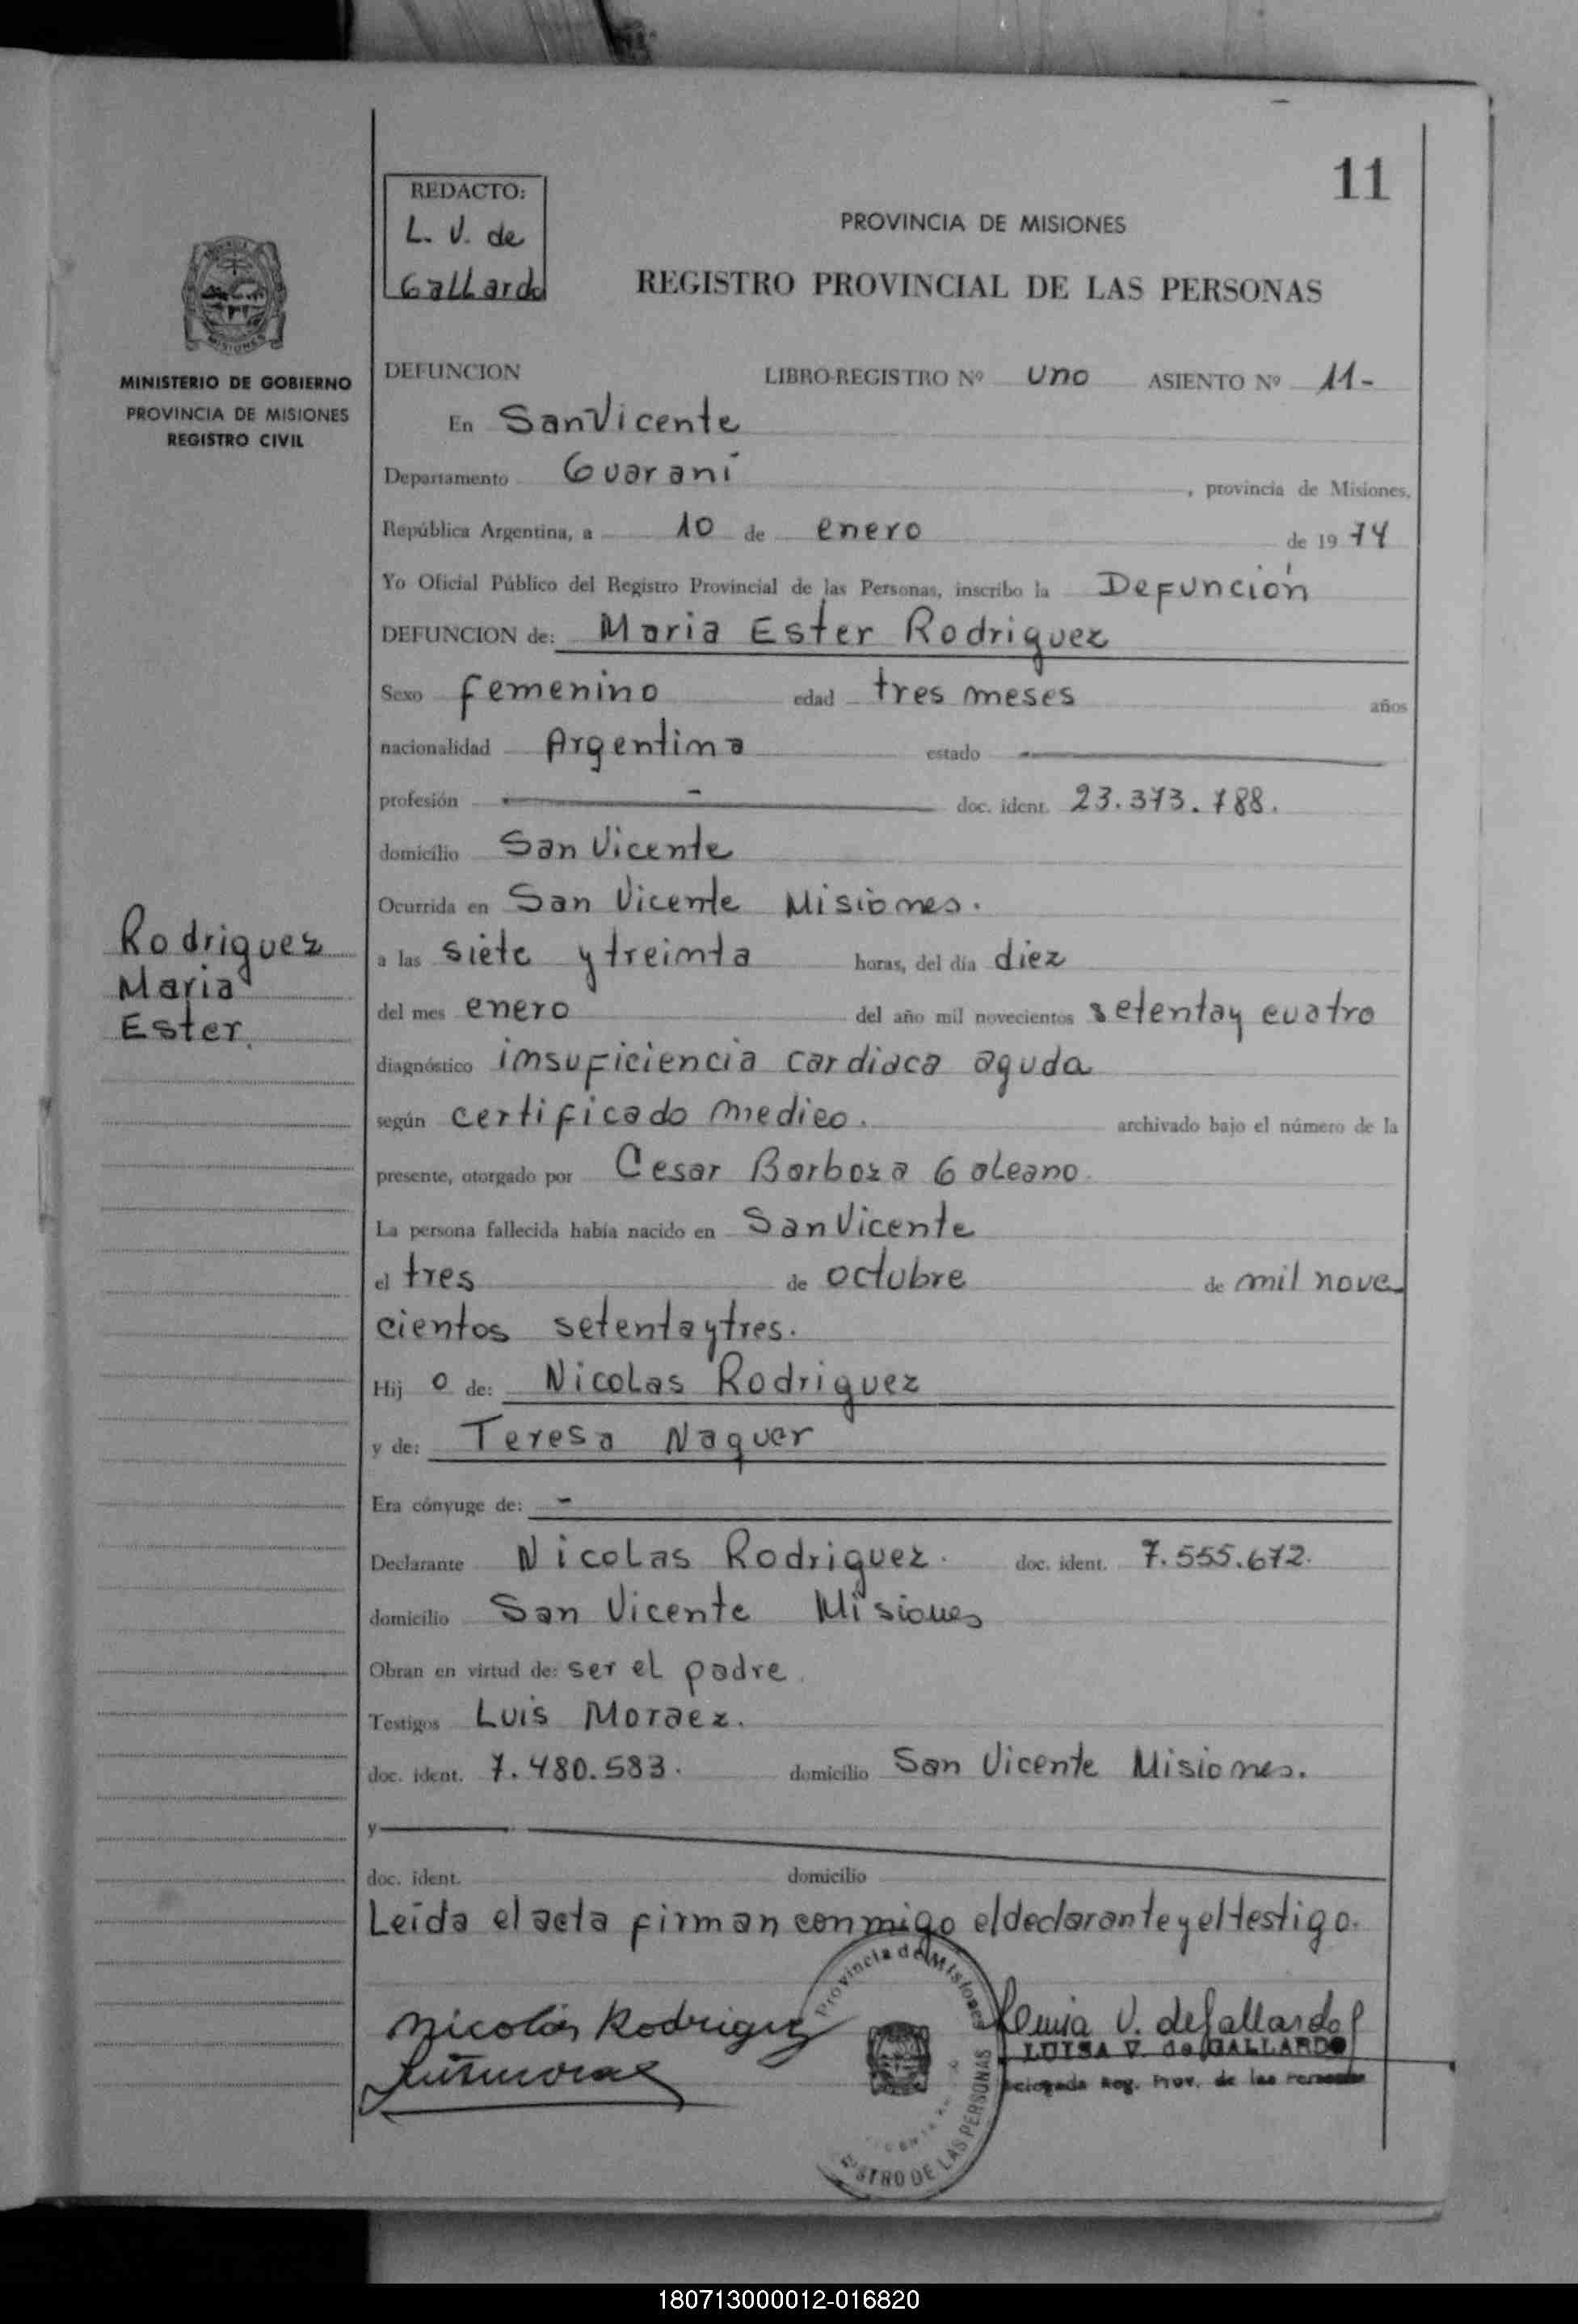 11
REDACTO:
L. V. de
Gallardo
PROVINCIA DE MISIONES
REGISTRO PROVINCIAL DE LAS PERSONAS
MINISTERIO DE GOBIERNO
PROVINCIA DE MISIONES
REGISTRO CIVIL
DEFUNCION LIBRO-REGISTRO Nº uno ASIENTO Nº 11-
En San Vicente
Departamento Guaraní, provincia de Misiones,
República Argentina, a 10 de enero de 1974
Yo Oficial Público del Registro Provincial de las Personas, inscribo la Defunción
DEFUNCION de: Maria Ester Rodriguez
Sexo femenino edad tres meses años
nacionalidad Argentina estado
profesión - doc. ident. 23.373.788.
domicilio San Vicente
Ocurrida en San Vicente Misiones.
a las siete y treinta horas, del día diez
del mes enero del año mil novecientos setenta y cuatro
diagnóstico insuficiencia cardiaca aguda
según certificado medico. archivado bajo el número de la
presente, otorgado por Cesar Barboza Galeano
La persona fallecida había nacido en San Vicente
el tres de octubre de mil nove
cientos setenta y tres.
Hij o de: Nicolas Rodriguez
y de: Teresa Naquer
Era cónyuge de: -
Declarante Nicolas Rodriguez. doc. ident. 7.555.672.
domicilio San Vicente Misiones
Obran en virtud de: ser el padre
Testigos Luis Moraez.
doc. ident. 7.480.583. domicilio San Vicente Misiones.
y
doc. ident. domicilio
Leída el acta firman conmigo el declarante y el testigo.
Rodriguez
Maria
Ester.
Nicolás Rodriguez
Provincia de Misiones
REGISTRO DE LAS PERSONAS
Luisa V. de Gallardo
LUISA V. de GALLARDO
Delegada Reg. Prov. de las Personas
180713000012-016820